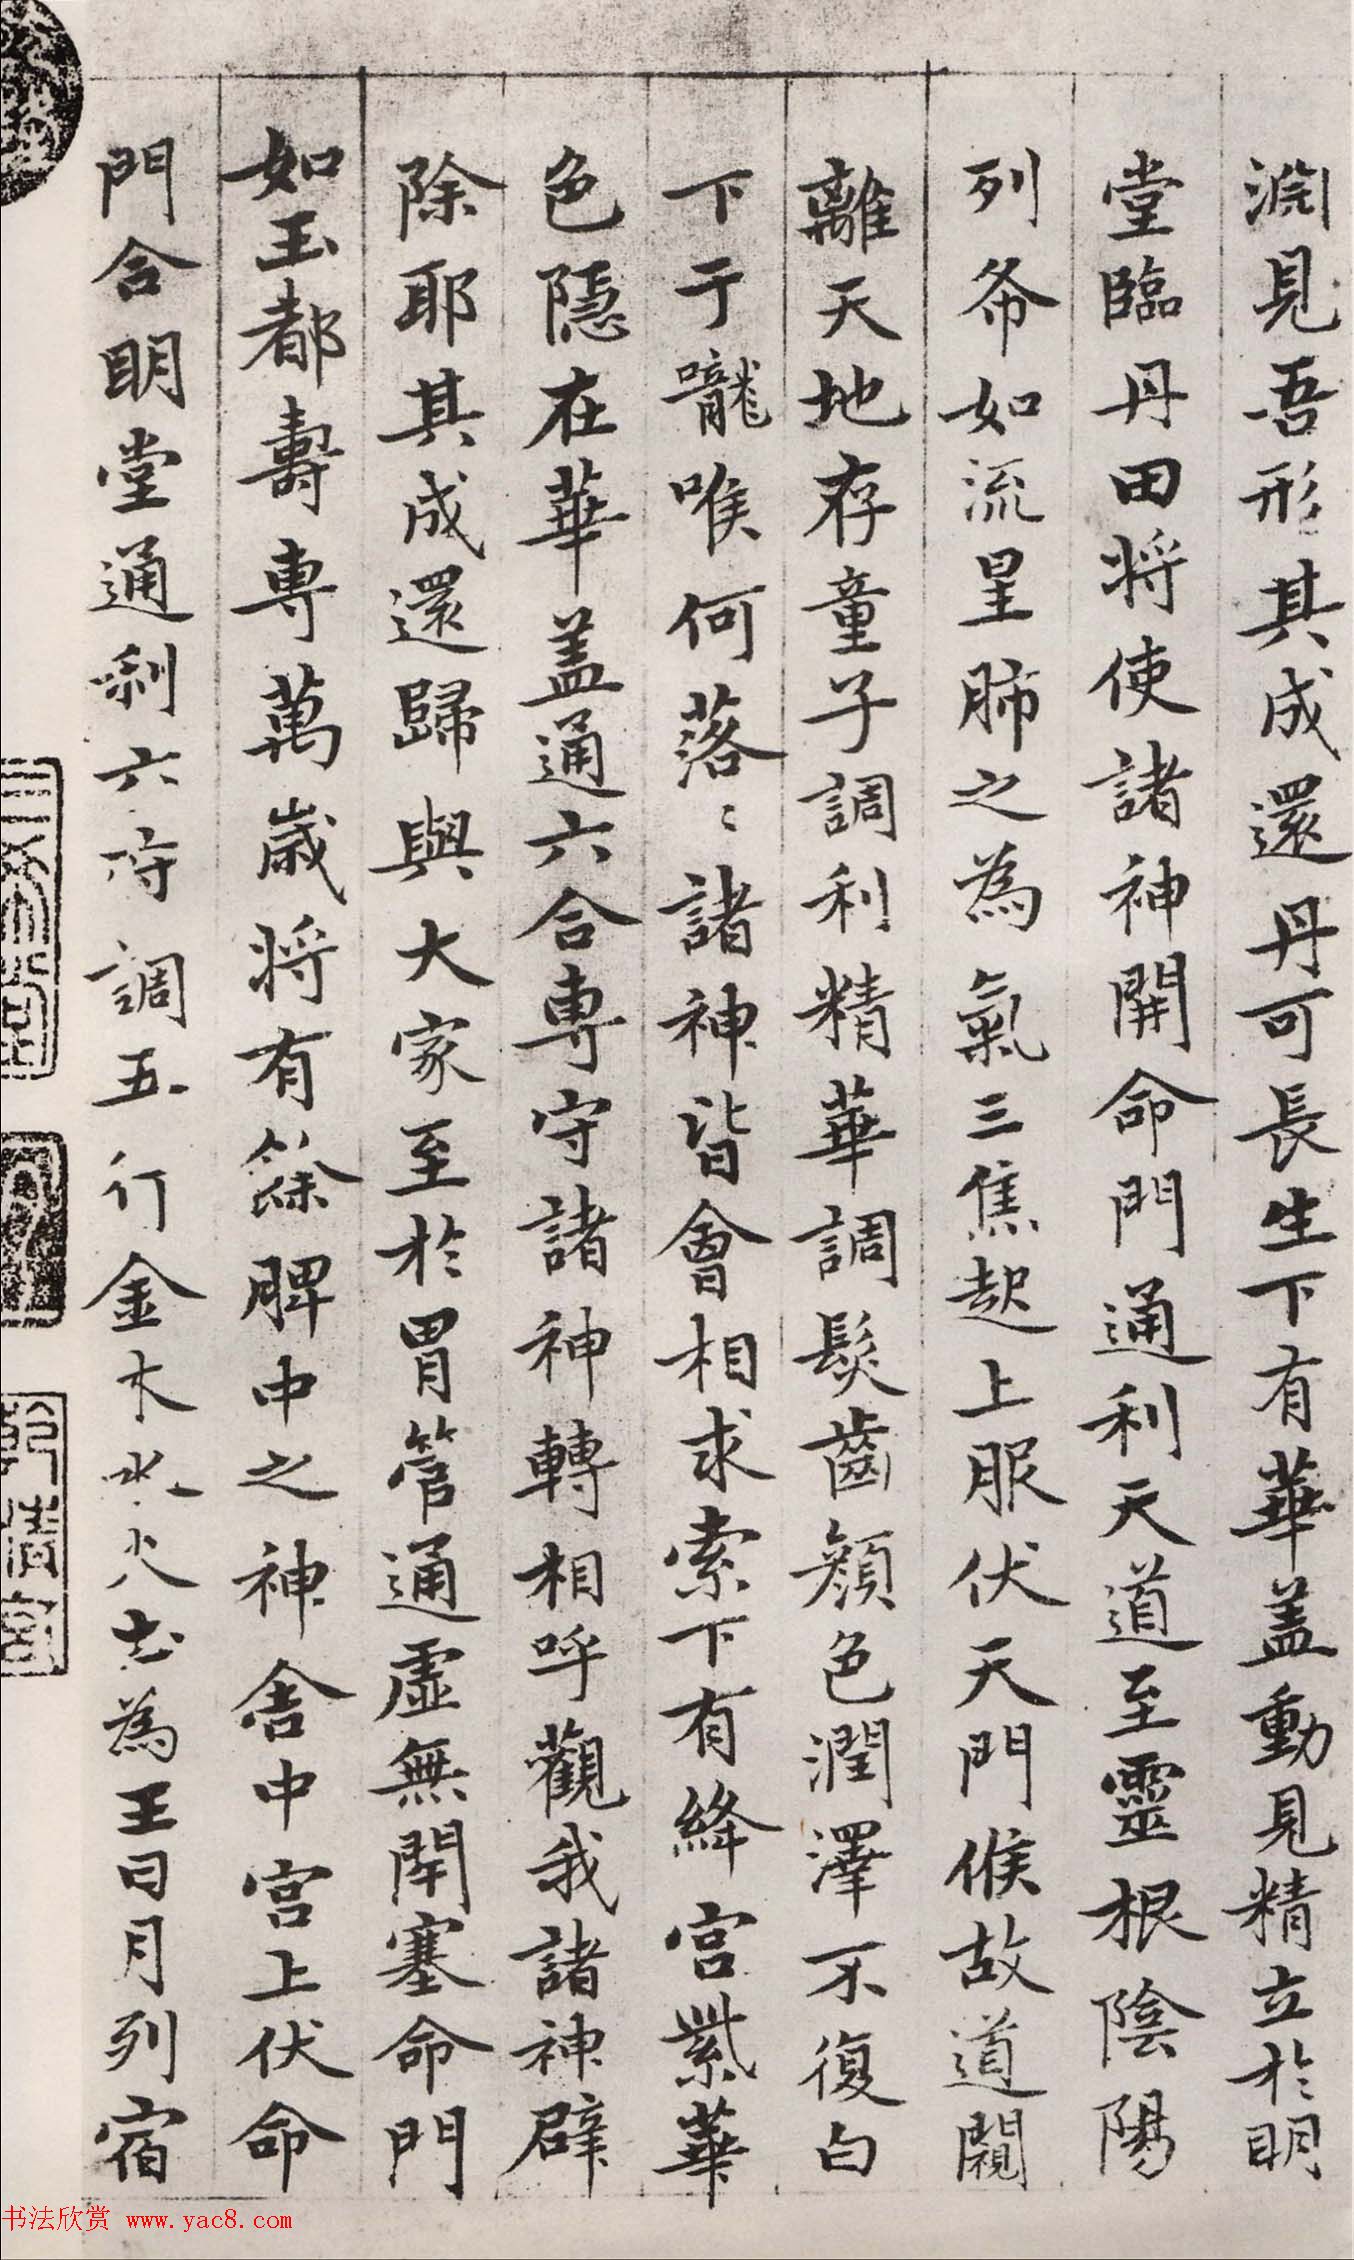 淵見吾形其成還丹可長生下有華盖動見精立於明
堂臨丹田将使諸神開命門通利天道至靈根陰陽
列布如流星肺之為氣三焦起上服伏天門候故道闚
離天地存童子調利精華調髮齒顔色潤澤不復白
下于嚨喉何落〻諸神皆會相求索下有絳宫紫華
色隱在華盖通六合專守諸神轉相呼觀我諸神辟
除耶其成還歸與大家至於胃管通虚無閇塞命門
如玉都壽專萬歲将有餘脾中之神舍中宫上伏命
門合明堂通利六府調五行金木水火土為王日月列宿
乾清宫
书法欣赏 www.yac8.com